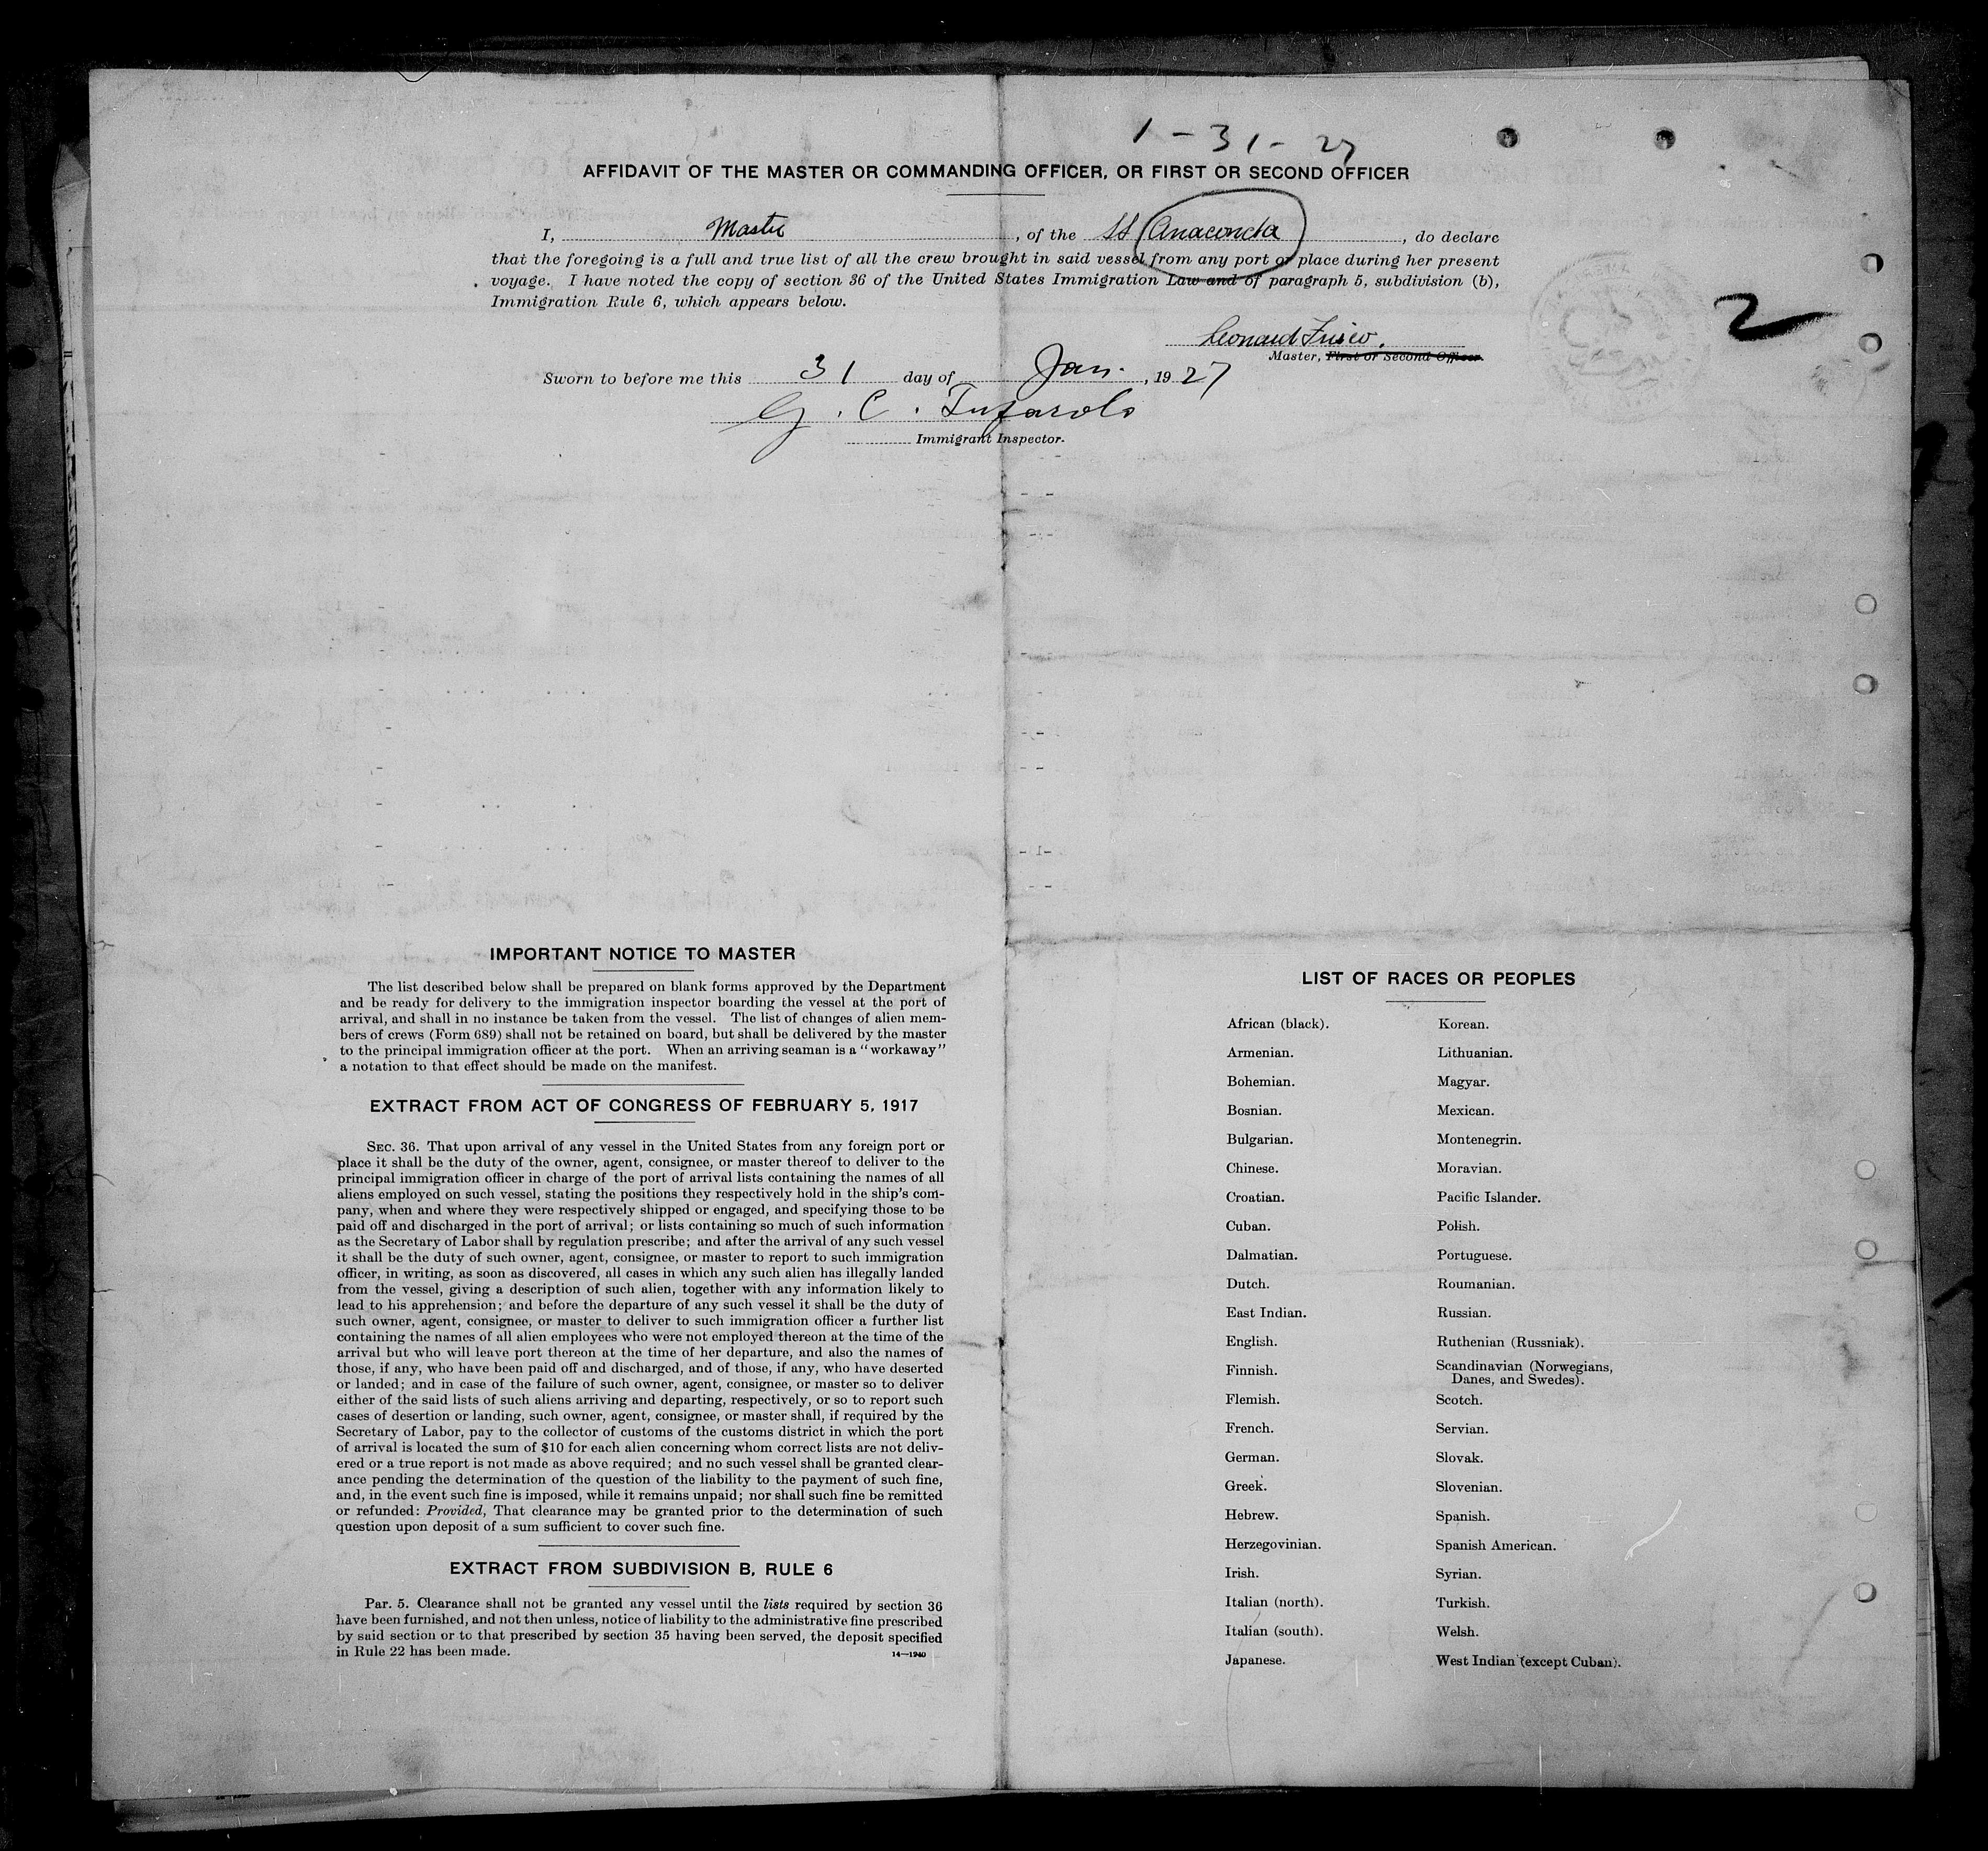 1 - 31 - 27
AFFIDAVIT OF THE MASTER OR COMMANDING OFFICER, OR FIRST OR SECOND OFFICER
I, Master, of the SS Anaconda, do declare
that the foregoing is a full and true list of all the crew brought in said vessel from any port or place during her present
voyage. I have noted the copy of section 36 of the United States Immigration Law and of paragraph 5, subdivision (b),
Immigration Rule 6, which appears below.
2
Leonard
Master, First or Second Officer.
Sworn to before me this 31 day of Jan., 1927
G. C. Tufarolo
Immigrant Inspector.
IMPORTANT NOTICE TO MASTER
The list described below shall be prepared on blank forms approved by the Department
and be ready for delivery to the immigration inspector boarding the vessel at the port of
arrival, and shall in no instance be taken from the vessel. The list of changes of alien mem-
bers of crews (Form 689) shall not be retained on board, but shall be delivered by the master
to the principal immigration officer at the port. When an arriving seaman is a "workaway"
a notation to that effect should be made on the manifest.
EXTRACT FROM ACT OF CONGRESS OF FEBRUARY 5, 1917
SEC. 36. That upon arrival of any vessel in the United States from any foreign port or
place it shall be the duty of the owner, agent, consignee, or master thereof to deliver to the
principal immigration officer in charge of the port of arrival lists containing the names of all
aliens employed on such vessel, stating the positions they respectively hold in the ship's com-
pany, when and where they were respectively shipped or engaged, and specifying those to be
paid off and discharged in the port of arrival; or lists containing so much of such information
as the Secretary of Labor shall by regulation prescribe; and after the arrival of any such vessel
it shall be the duty of such owner, agent, consignee, or master to report to such immigration
officer, in writing, as soon as discovered, all cases in which any such alien has illegally landed
from the vessel, giving a description of such alien, together with any information likely to
lead to his apprehension; and before the departure of any such vessel it shall be the duty of
such owner, agent, consignee, or master to deliver to such immigration officer a further list
containing the names of all alien employees who were not employed thereon at the time of the
arrival but who will leave port thereon at the time of her departure, and also the names of
those, if any, who have been paid off and discharged, and of those, if any, who have deserted
or landed; and in case of the failure of such owner, agent, consignee, or master so to deliver
either of the said lists of such aliens arriving and departing, respectively, or so to report such
cases of desertion or landing, such owner, agent, consignee, or master shall, if required by the
Secretary of Labor, pay to the collector of customs of the customs district in which the port
of arrival is located the sum of $10 for each alien concerning whom correct lists are not deliv-
ered or a true report is not made as above required; and no such vessel shall be granted clear-
ance pending the determination of the question of the liability to the payment of such fine,
and, in the event such fine is imposed, while it remains unpaid; nor shall such fine be remitted
or refunded: Provided, That clearance may be granted prior to the determination of such
question upon deposit of a sum sufficient to cover such fine.
EXTRACT FROM SUBDIVISION B, RULE 6
Par. 5. Clearance shall not be granted any vessel until the lists required by section 36
have been furnished, and not then unless, notice of liability to the administrative fine prescribed
by said section or to that prescribed by section 35 having been served, the deposit specified
in Rule 22 has been made.
14—1940
LIST OF RACES OR PEOPLES
African (black). Korean.
Armenian. Lithuanian.
Bohemian. Magyar.
Bosnian. Mexican.
Bulgarian. Montenegrin.
Chinese. Moravian.
Croatian. Pacific Islander.
Cuban. Polish.
Dalmatian. Portuguese.
Dutch. Roumanian.
East Indian. Russian.
English. Ruthenian (Russniak).
Finnish. Scandinavian (Norwegians,
Danes, and Swedes).
Flemish. Scotch.
French. Servian.
German. Slovak.
Greek. Slovenian.
Hebrew. Spanish.
Herzegovinian. Spanish American.
Irish. Syrian.
Italian (north). Turkish.
Italian (south). Welsh.
Japanese. West Indian (except Cuban).